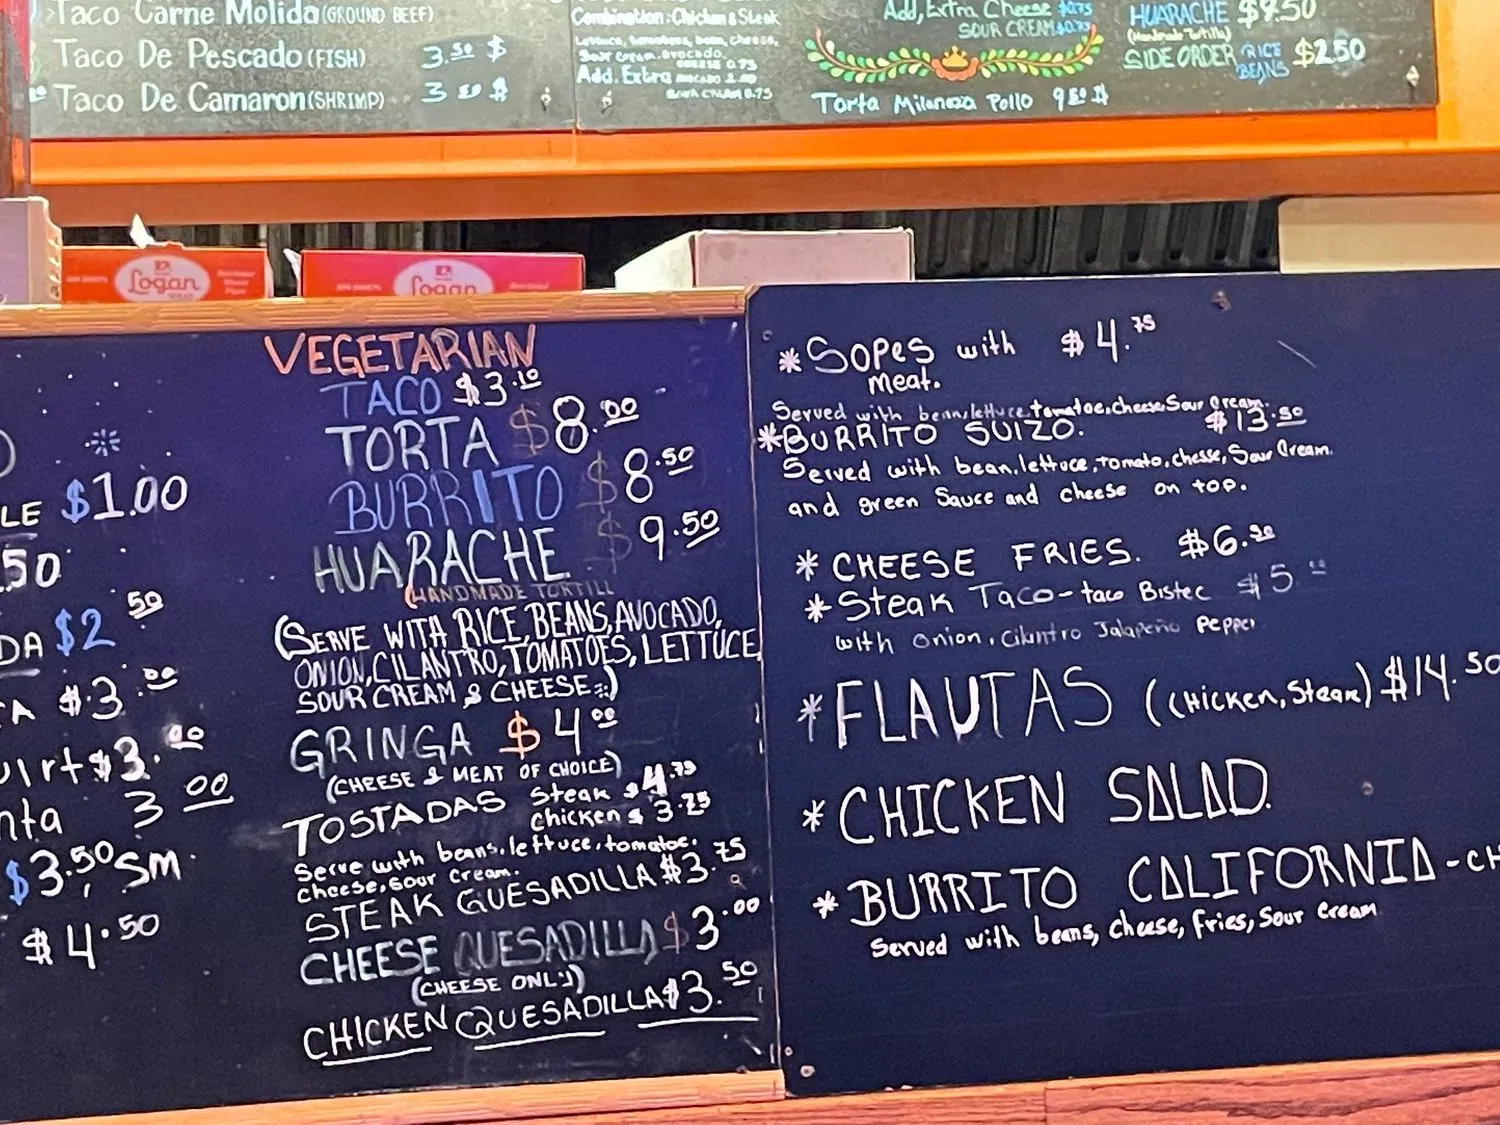 Taco Carne Molida (GROUND BEEF)
Taco De Pescado (FISH) 3.50 $
Taco De Camaron (SHRIMP) 3 50 $
Combination: Chicken & Steak
Lettuce, tomatoes, bean, cheese,
Sour cream, avocado
CHEESE 0.75
Add. Extra AVOCADO 2.00
SOUR CREAM 0.75
Add, Extra Cheese $0.75
SOUR CREAM $0.75
Torta Milaneza Pollo 9 50 $
HUARACHE $9.50
(Handmade Tortilla)
SIDE ORDER RICE BEANS $2.50
Logan
Logan
LE $1.00
.50
DA $2 50
TA $3.00
uirt $3.00
nta 3 00
$3.50 SM
$4.50
VEGETARIAN
TACO $3.10
TORTA $8.00
BURRITO $8.50
HUARACHE $9.50
(HANDMADE TORTILL
(SERVE WITH RICE, BEANS, AVOCADO,
ONION, CILANTRO, TOMATOES, LETTUCE,
SOUR CREAM & CHEESE)
GRINGA $4 00
(CHEESE & MEAT OF CHOICE)
TOSTADAS Steak $4.75
chicken $3.25
Serve with beans, lettuce, tomatoe,
cheese, sour cream.
STEAK QUESADILLA $3.75
CHEESE QUESADILLA $3.00
(CHEESE ONLY)
CHICKEN QUESADILLA $3.50
* Sopes with $4.75
meat.
Served with bean, lettuce, tomatoe, cheese, Sour Cream.
* BURRITO SUIZO. $13.50
Served with bean, lettuce, tomato, chesse, Sour Cream.
and green Sauce and cheese on top.
* CHEESE FRIES. $6.50
* Steak Taco - taco Bistec $5
with onion, cilantro Jalapeño Pepper
* FLAUTAS (Chicken, Steak) $14.50
* CHICKEN SALAD.
* BURRITO CALIFORNIA - CH
Served with beans, cheese, fries, Sour cream